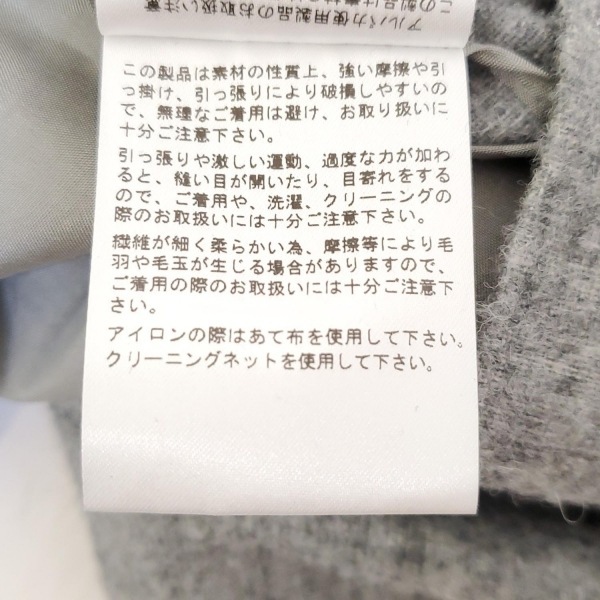 アルパカ使用製品のお取扱い注意
この製品は素材の性質上、強い摩擦や引
っ掛け、引っ張りにより破損しやすいの
で、無理なご着用は避け、お取り扱いに
十分ご注意下さい。
引っ張りや激しい運動、過度な力が加わ
ると、縫い目が開いたり、目寄れをする
ので、ご着用や、洗濯、クリーニングの
際のお取扱いには十分ご注意下さい。
繊維が細く柔らかい為、摩擦等により毛
羽や毛玉が生じる場合がありますので、
ご着用の際のお取扱いには十分ご注意下
さい。
アイロンの際はあて布を使用して下さい。
クリーニングネットを使用して下さい。